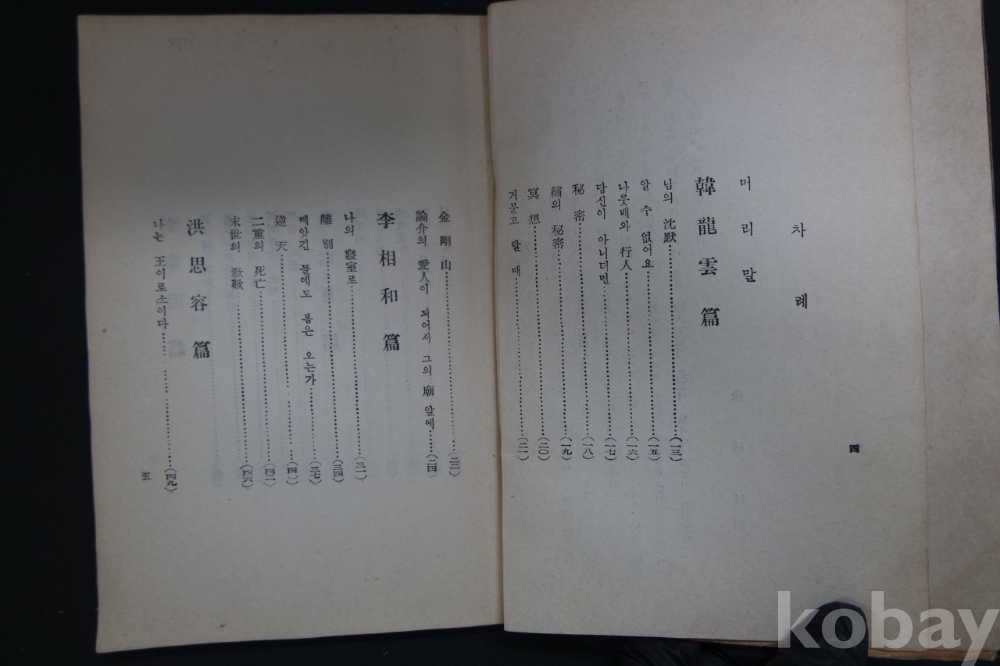 차례
머리말
韓龍雲篇
님의 沈默 (一三)
알 수 없어요 (一五)
나룻배와 行人 (一六)
당신이 아니더면 (一七)
秘密 (一八)
繡의 秘密 (一九)
冥想 (二〇)
거문고 탈 때 (二一)
四
金剛山 (二二)
論介의 愛人이 되어서 그의 廟 앞에 (二四)
李相和篇
나의 寢室로 (三一)
離別 (三四)
빼앗긴 들에도 봄은 오는가 (三七)
逆天 (四一)
二重의 死亡 (四二)
末世의 欷歎 (四六)
洪思容篇
나는 王이로소이다 (四九)
五
kobay